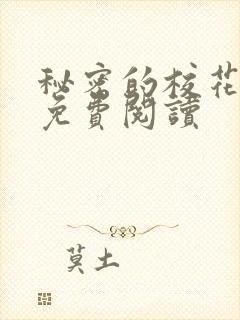 秘密的校花
免費閱讀
莫土